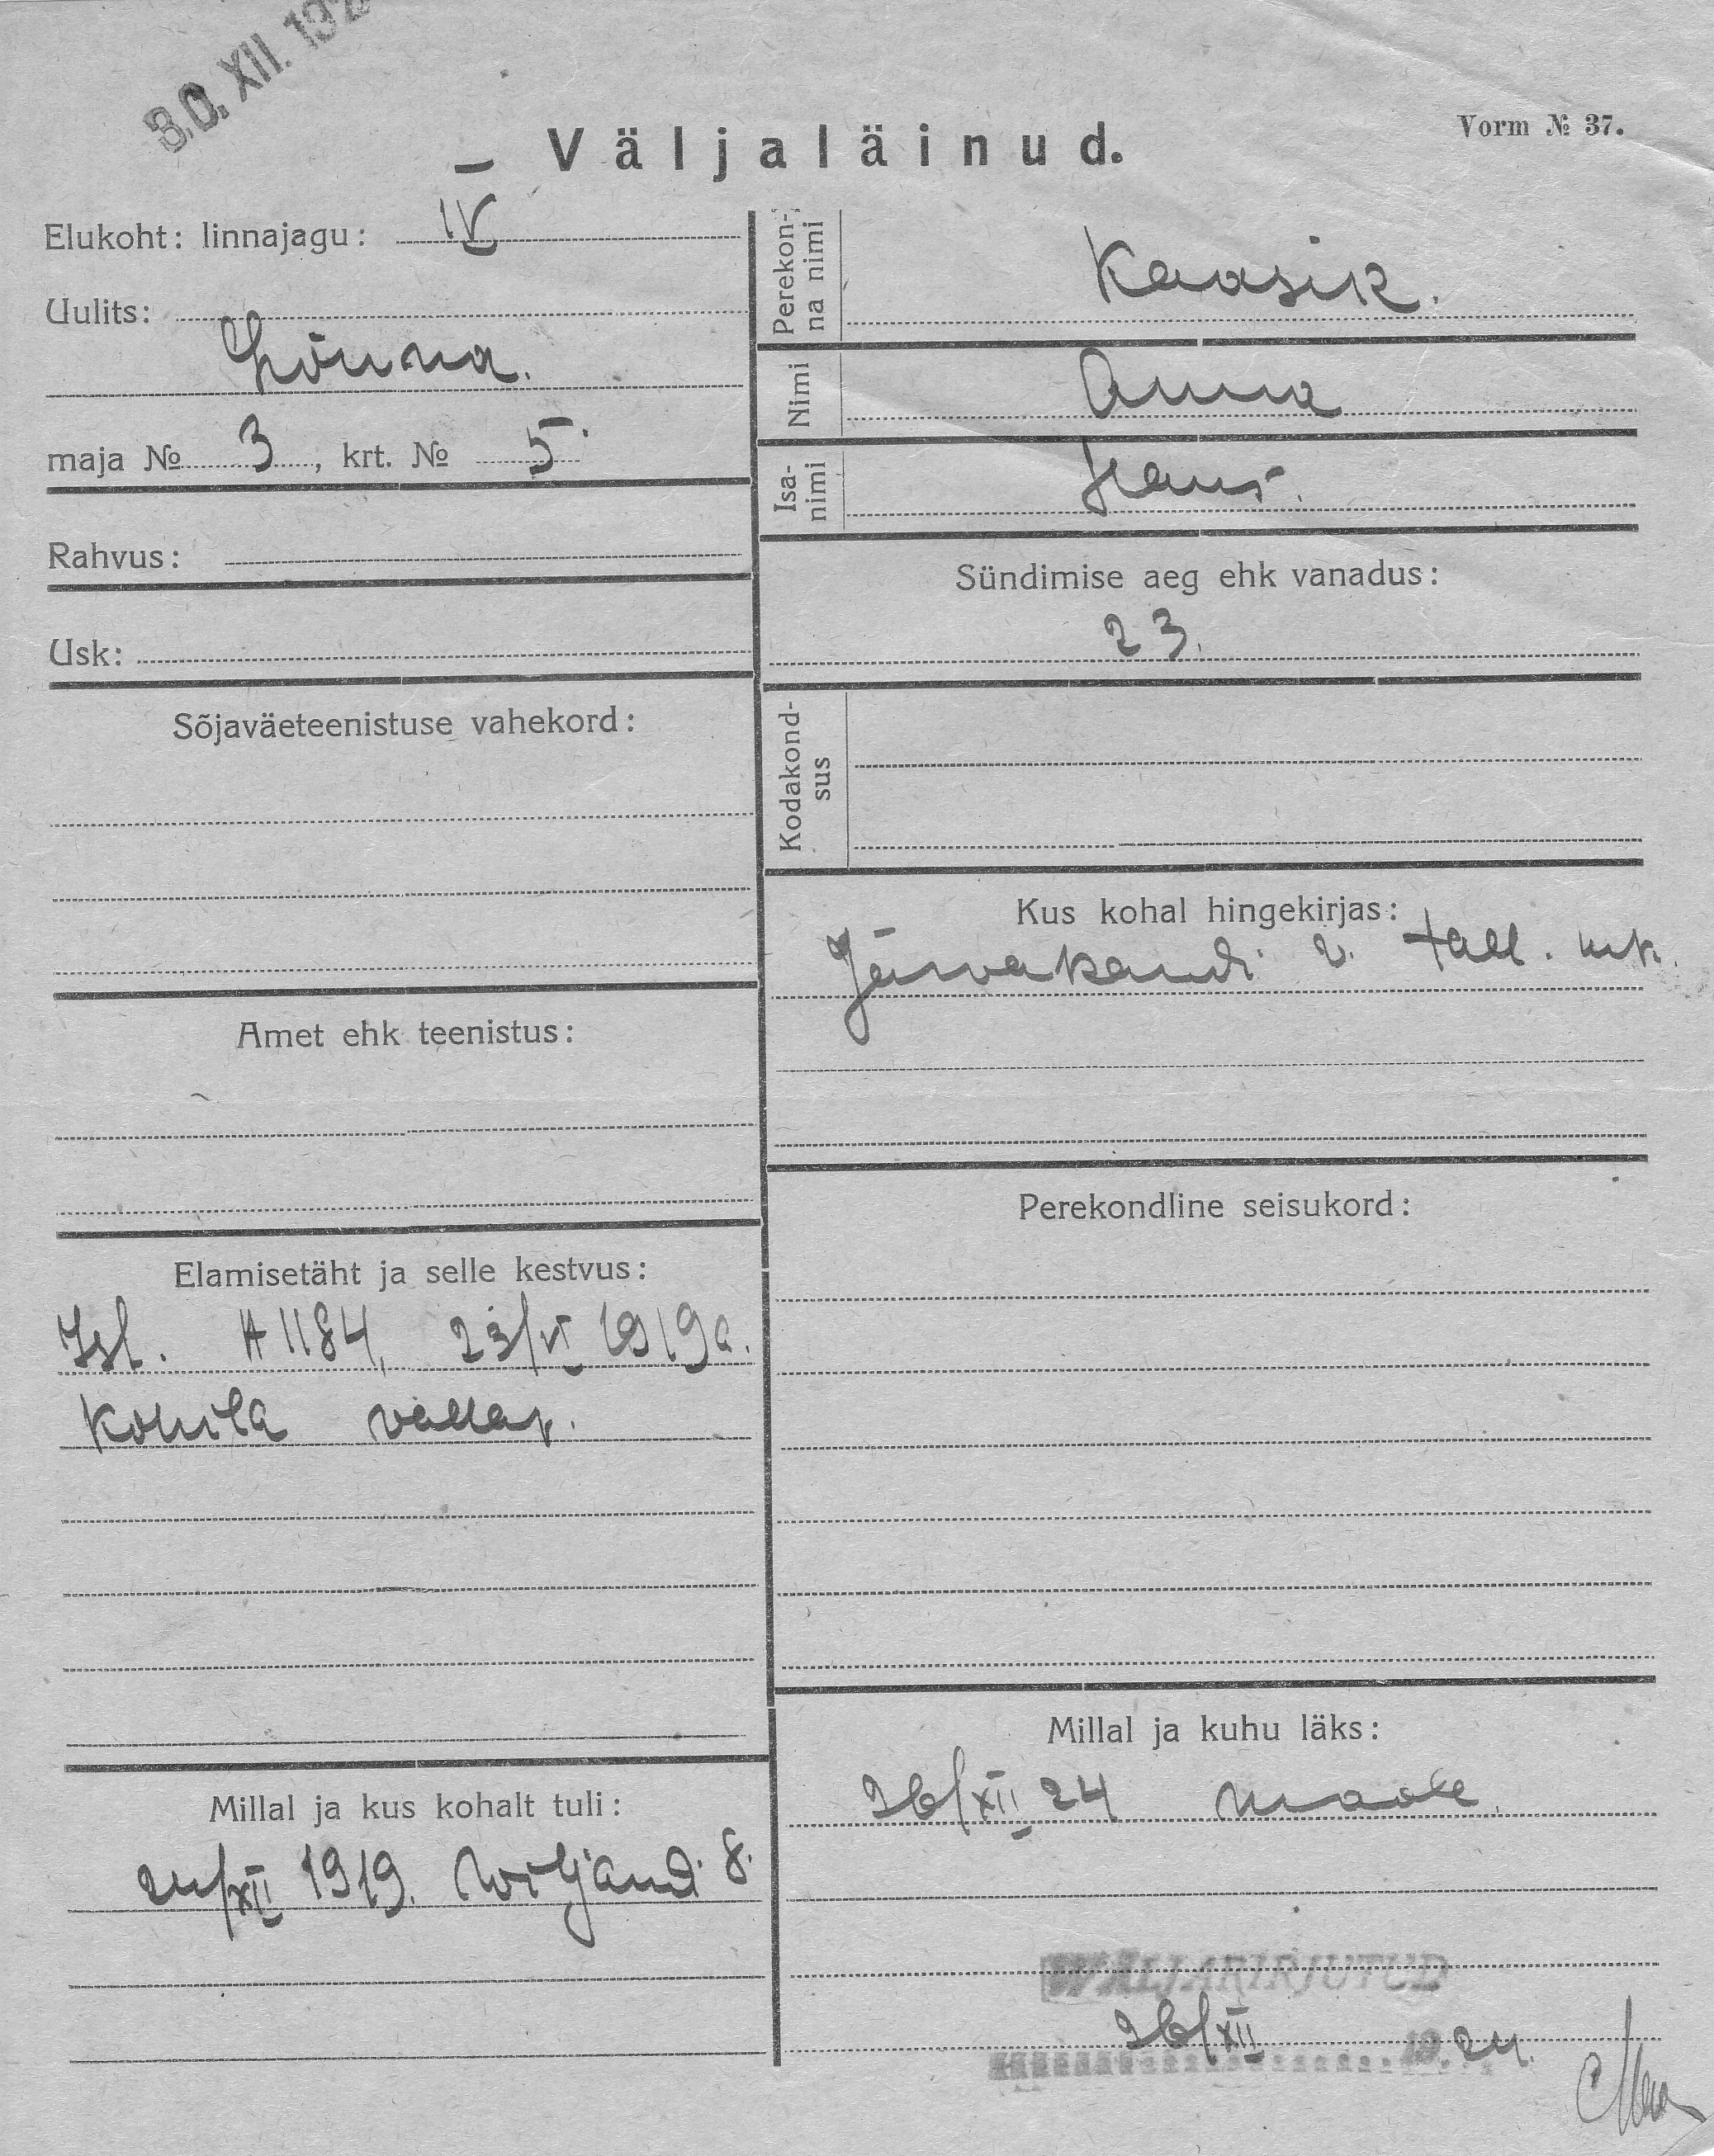 30. XII. 192
Vorm № 37.
Väljaläinud.
Elukoht: linnajagu: IV
Uulits:
Lõuna.
maja № 3, krt. № 5.
Rahvus:
Usk:
Sõjaväeteenistuse vahekord:
Amet ehk teenistus:
Elamisetäht ja selle kestvus:
Isl. A 1184, 23/VI 1919 a.
Kohila vallav.
Millal ja kus kohalt tuli:
24/XII 1919. Wiljandi 8.
Perekon-
na nimi
Kaasik.
Nimi
Anna
Isa-
nimi
Hans.
Sündimise aeg ehk vanadus:
23.
Kodakond-
sus
Kus kohal hingekirjas:
Järwakandi v. Tall. mk.
Perekondline seisukord:
Millal ja kuhu läks:
26/XII 24 maale.
WÄLJAKIRJUTUD
26/XII 1924.